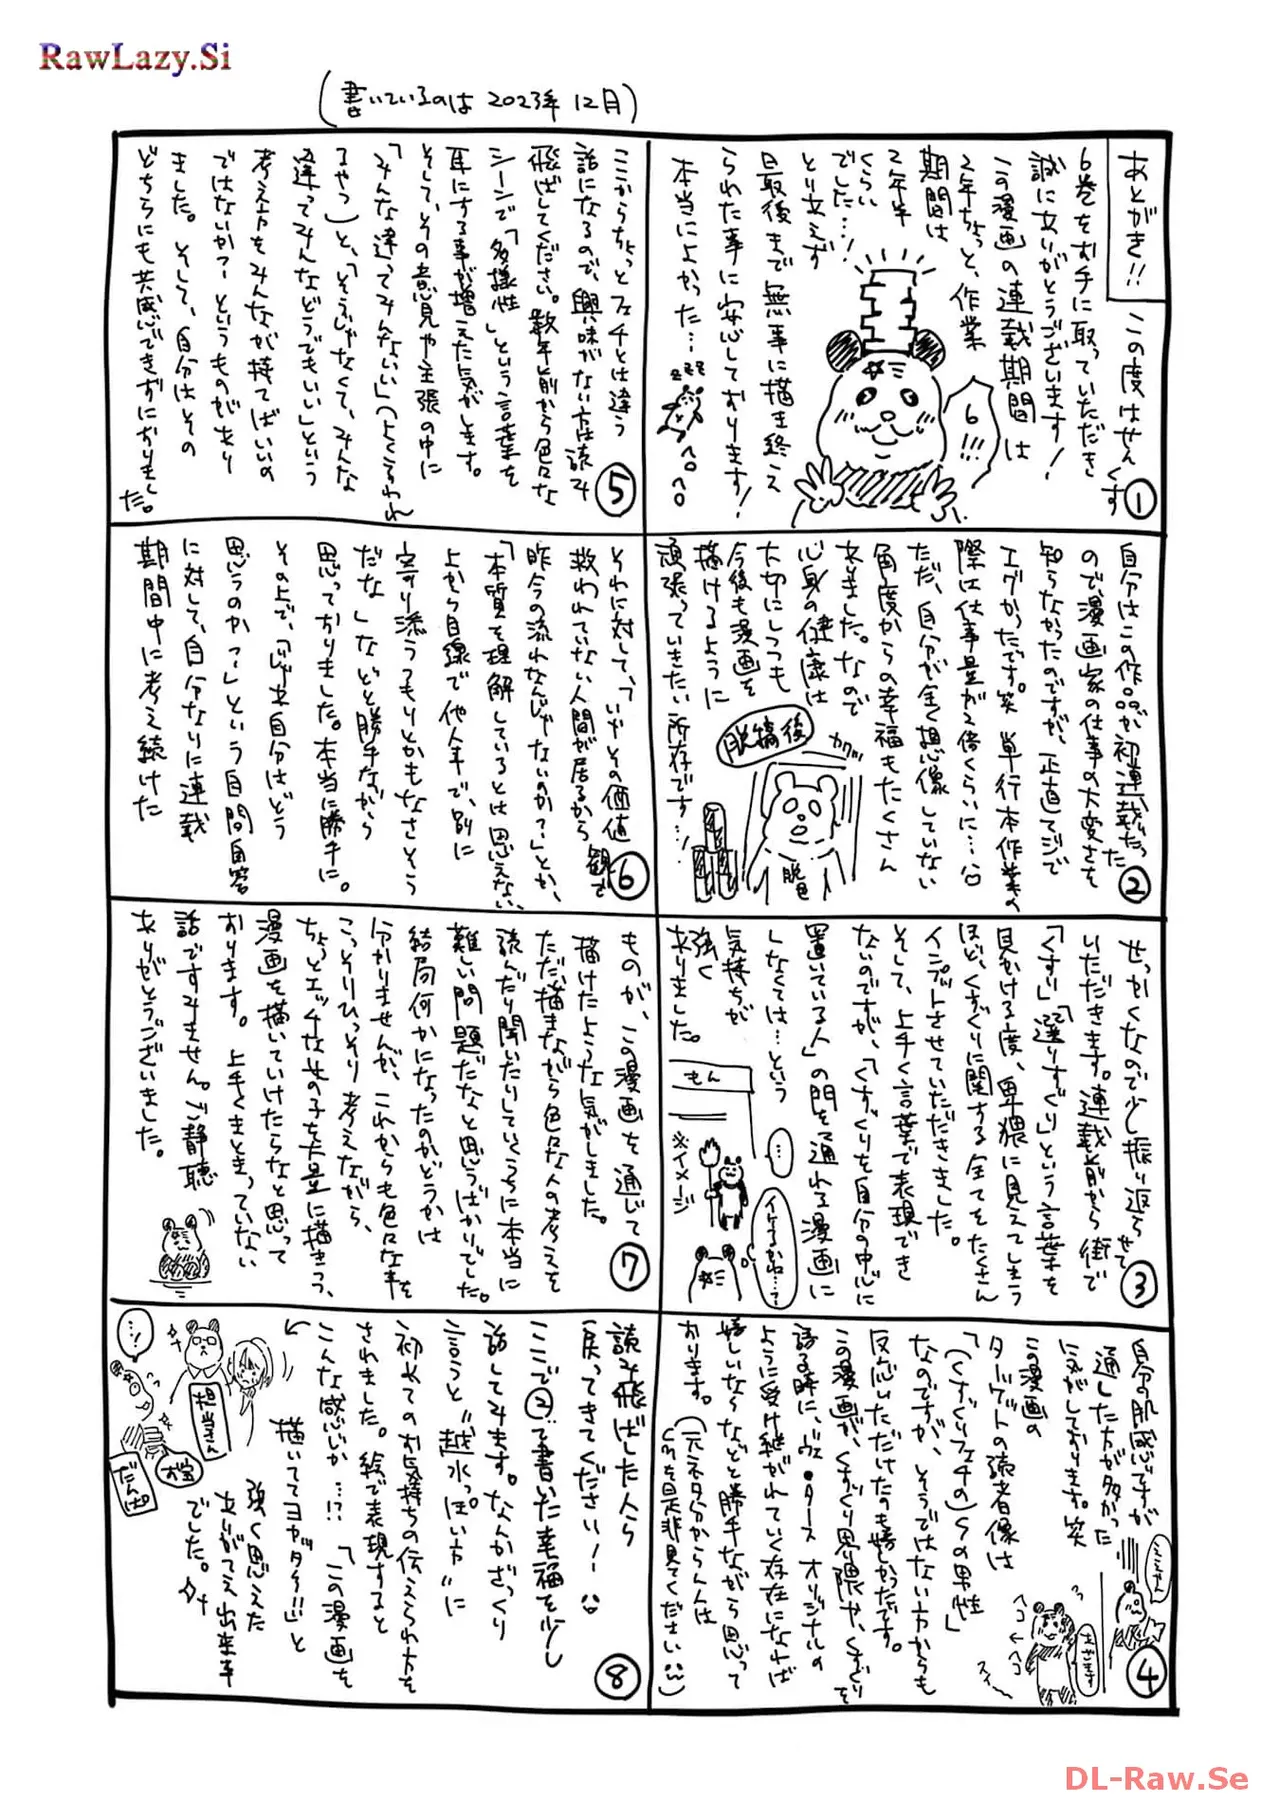 RawLazy.Si
(書いているのは 2023年 12月)
あとがき!!
この度はせんくす
6巻をお手に取っていただき
誠にありがとうございます!
この漫画の連載期間は
2年ちょっと、作業
期間は
2年半
くらい
でした…!
とりあえず
最後まで無事に描き終え
られた事に安心しております!
本当によかった…
6!!!
zzz
①
自分はこの作品が初連載だった
ので、漫画家の仕事の大変さを
知らなかったのですが、正直マジで
エグかったです。笑 単行本作業の
際は仕事量が2倍くらいに…
ただ、自分が全く想像していない
角度からの幸福もたくさん
ありました。なので
心身の健康は
大切にしつつも
今後も漫画を
描けるように
頑張っていきたい所存です…!
脱稿後
カクッ
脱色
②
せっかくなので少し振り返らせて
いただきます。連載前から街で
「くすり」「選りすぐり」という言葉を
見かける度、卑猥に見えてしまう
ほど、くすぐりに関する全てをたくさん
インプットさせていただきました。
そして、上手く言葉で表現でき
ないのですが、「くすぐりを自分の中心に
置いている人」の門を通れる漫画に
しなくては…という
気持ちが
強く
ありました。
もん
※イメージ
…
イケるかね…?
③
自分の肌感ですが
通した方が多かった
気がしております。笑
この漫画の
ターゲットの読者像は
「(くすぐりフェチの)Sの男性」
なのですが、そうではない方からも
反応いただけたのも嬉しかったです。
この漫画が、くすぐり界隈や、くすぐりを
語る時に、ヴェ・タース オリジナルの
ように受け継がれていく存在になれば
嬉しいななどと勝手ながら思って
おります。(元ネタ分からん人は
CMを是非見てください)
ええやん
あざます
スイー
④
ここからちょっとフェチとは違う
話になるので、興味がない方は読み
飛ばしてください。数年前から色々な
シーンで「多様性」という言葉を
耳にする事が増えた気がします。
そして、その意見や主張の中に
「みんな違ってみんないい」(よくいわれ
るやつ)と、「そうじゃなくて、みんな
違ってみんなどうでもいい」という
考え方をみんなが持てばいいの
ではないか?というものがあり
ました。そして、自分はその
どちらにも共感できずにおりまし
た。
⑤
それに対して、「いやその価値観で
救われていない人間が居るから
昨今の流れなんじゃないのか?」とか、
「本質を理解しているとは思えない、
上から目線で他人事で、別に
寄り添うつもりとかもなさそう
だな」などと勝手ながら
思っておりました。本当に勝手に。
その上で、「じゃあ自分はどう
思うのか?」という自問自答
に対して、自分なりに連載
期間中に考え続けた
⑥
ものが、この漫画を通じて
描けたような気がしました。
ただ、描きながら色々な人の考えを
読んだり聞いたりしていくうちに本当に
難しい問題だなと思うばかりでした。
結局何かになったのかどうかは
分かりませんが、これからも色々な事を
こっそりひっそり考えながら、
ちょっとエッチな女の子を大量に描きつつ、
漫画を描いていけたらなと思って
おります。上手くまとまっていない
話ですみません。ご静聴
ありがとうございました。
⑦
読み飛ばした人ら
戻ってきてくださいー!
ここで②で書いた幸福を少し
話してみます。なんかざっくり
言うと"越水っぽい方"に
初めてのお気持ちの伝えられ方を
されました。絵で表現すると
こんな感じか…!?「この漫画を
描いててヨカダター!!」と
強く思えた
ありがてえ出来事
でした。
…!
担当さん
お宝
だんぱ
⑧
DL-Raw.Se